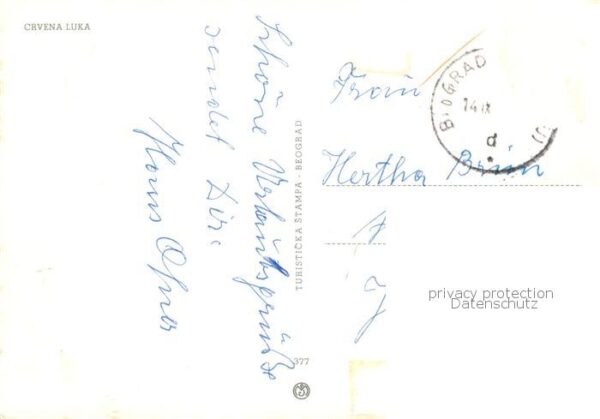 CRVENA LUKA
Schöne Urlaubsgrüße
sendet Dir
Hans
TURISTIČKA ŠTAMPA - BEOGRAD
377
BIOGRAD
14 IX
d
Frau
Hertha Brün
privacy protection
Datenschutz